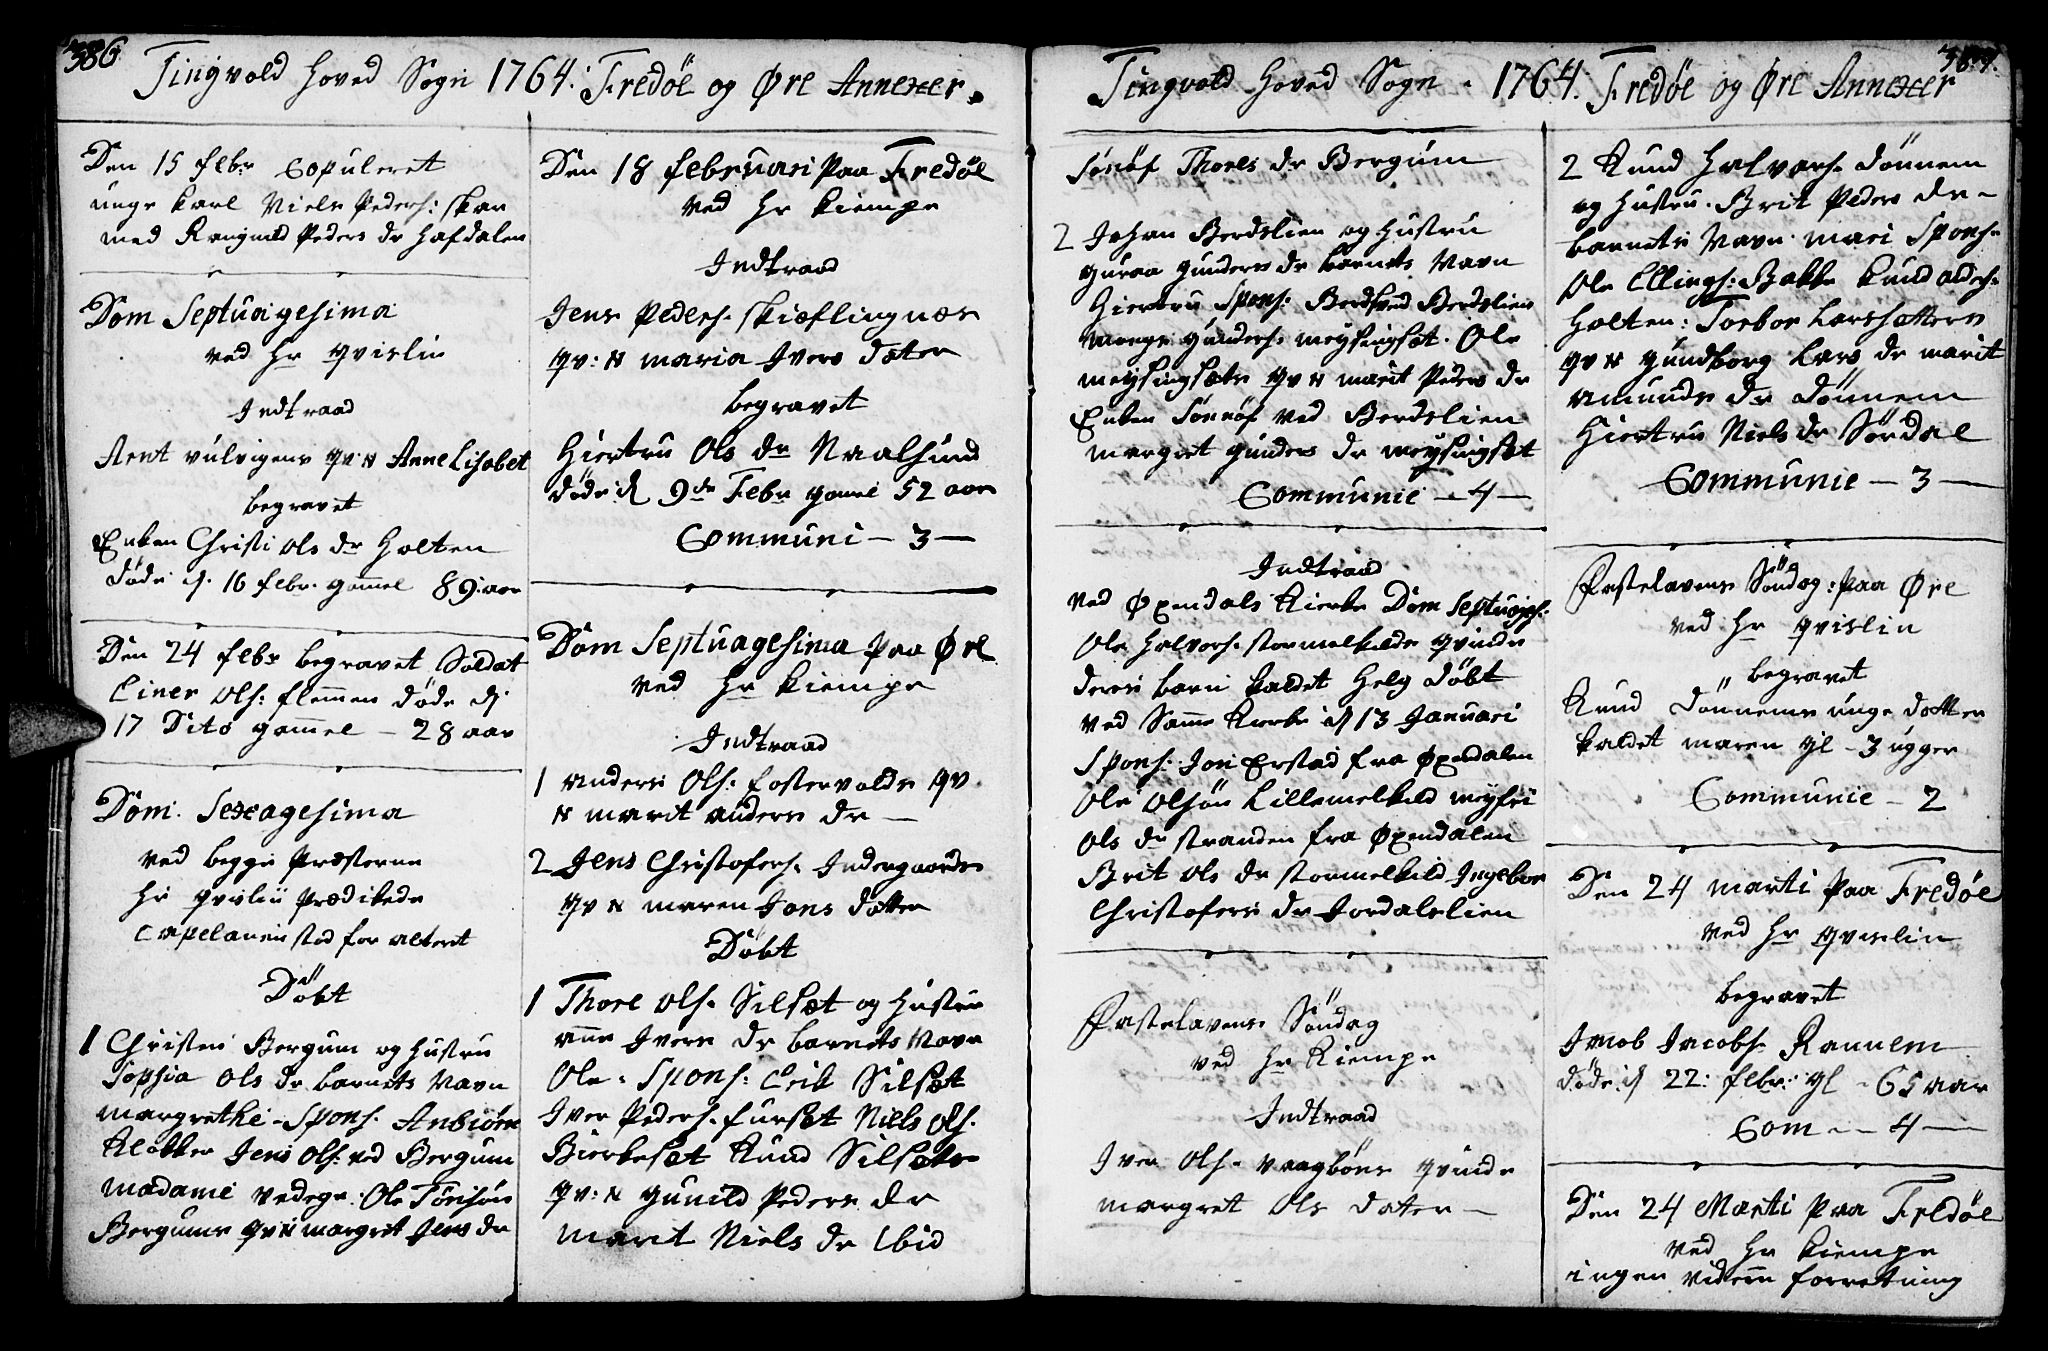 386
Tingvold Hoved Sogn 1764. Fredöe og Øre Annexer.
Den 15 febr Copuleret
unge karl Niels Peders: skar
med Rangnild Peders dr Hafdalen
Dom Septuagesima
ved Hr Qvislin
Indtraad
Arnt vulvigens qv: N Anne Lisabet
begravet
Enken Christi Ols dr Holten
döde d. 16 febr. gamel 89: aar
Den 24 febr begravet Soldat
Einer Ols: flemmen döde d
17 Dito gammel - 28 aar
Dom. Sexagesima
ved begge Præsterne
Hr Qvislin Prædikede
Capelanen stod for alteret
Döbt
1 Christen Bergum og Hustru
Sophia Ols dr barnets Navn
margrethe - Spons. Anbiörn
Klokker Jens Ols: ved Bergum
madame vedege. Ole Törisön
Bergums qv N margret Jens dr
Den 18 februari paa Fredöe
ved Hr Kiempe
Indtraad
Jens Peders. skieflingnæs
qv: N maria Ivers dater
begravet
Hiertru Ols dr Naalsund
döde d 9de Febr gamel 52 aar
Communi - 3 -
Dom Septuagesima paa Øre
ved Hr Kiempe
Indtraad
1 anders Ols: Fostervolds qv
N marit anders dr -
2 Jens Christofers. Indergaards
qv N maren Jons datter
Döbt
1 Thore Ols. Silset og Hustru
ane Ivers dr barnets Navn
Ole. Spons: Erik Silset
Iver Peders. furset Niels Ols.
Bierkeset Knud Silsets
qv: N gunild Peders dr
marit Niels dr Ibid
387.
Tingvold Hoved Sogn. 1764. Fredöe og Øre Annexer
Sönöf Thores dr Bergum
2 Johan Berdslien og Hustru
guraa gunders dr barnets Navn
Hiertru Spons: Berdsved Berdslien
gunders. meysingset. Ole
meysingsets qv N marit Peders dr
Enken Sönnöf ved Berdslien
margret gunders dr meysingset
Communie - 4 -
Indtraad
ved Øxendals Kierke Dom Septuages:
Ole Halvors. stormelkilds qvinde
deres barn kaldet Helg döbt
ved Samme Kierke d 13 Januari
Spons. Jon Erstad fra Øxendalen
Ole Olsön Lillemelkild meyfri
Ols dr stranden fra Øxendalen
Brit Ols dr stormelkild Ingebor
Christofers dr Jordalslien
Fastelavens Söndag
ved Hr Kiempe
Indtraad
Iver Ols. vaagböns qvinde
margret Ols dater -
2 Knud Halvors. dönnem
og Hustru. Brit Peders dr -
barnets Navn. mari Spons.
Ole Ellings: Bakke Knud
Holten: Torbor Larshetters
qv N gundborg Lars dr marit
amunds dr dönnem
Hiertru Niels dr Sördal
Communie - 3 -
Fastelavens Söndag: paa Øre
ved Hr Qvislin
begravet
Knud dönnems unge datter
kaldet maren gl - 3 ugger
Communie - 2
Den 24 marti paa Fredöe
ved Hr Qvislin
begravet
Jacob Jacobs. Rannem
döde: d 22: febr: gl - 65 aar
Com - - 4 -
Den 24 Marti paa Fredöe
ved Hr Kiempe
ingen videre forretning